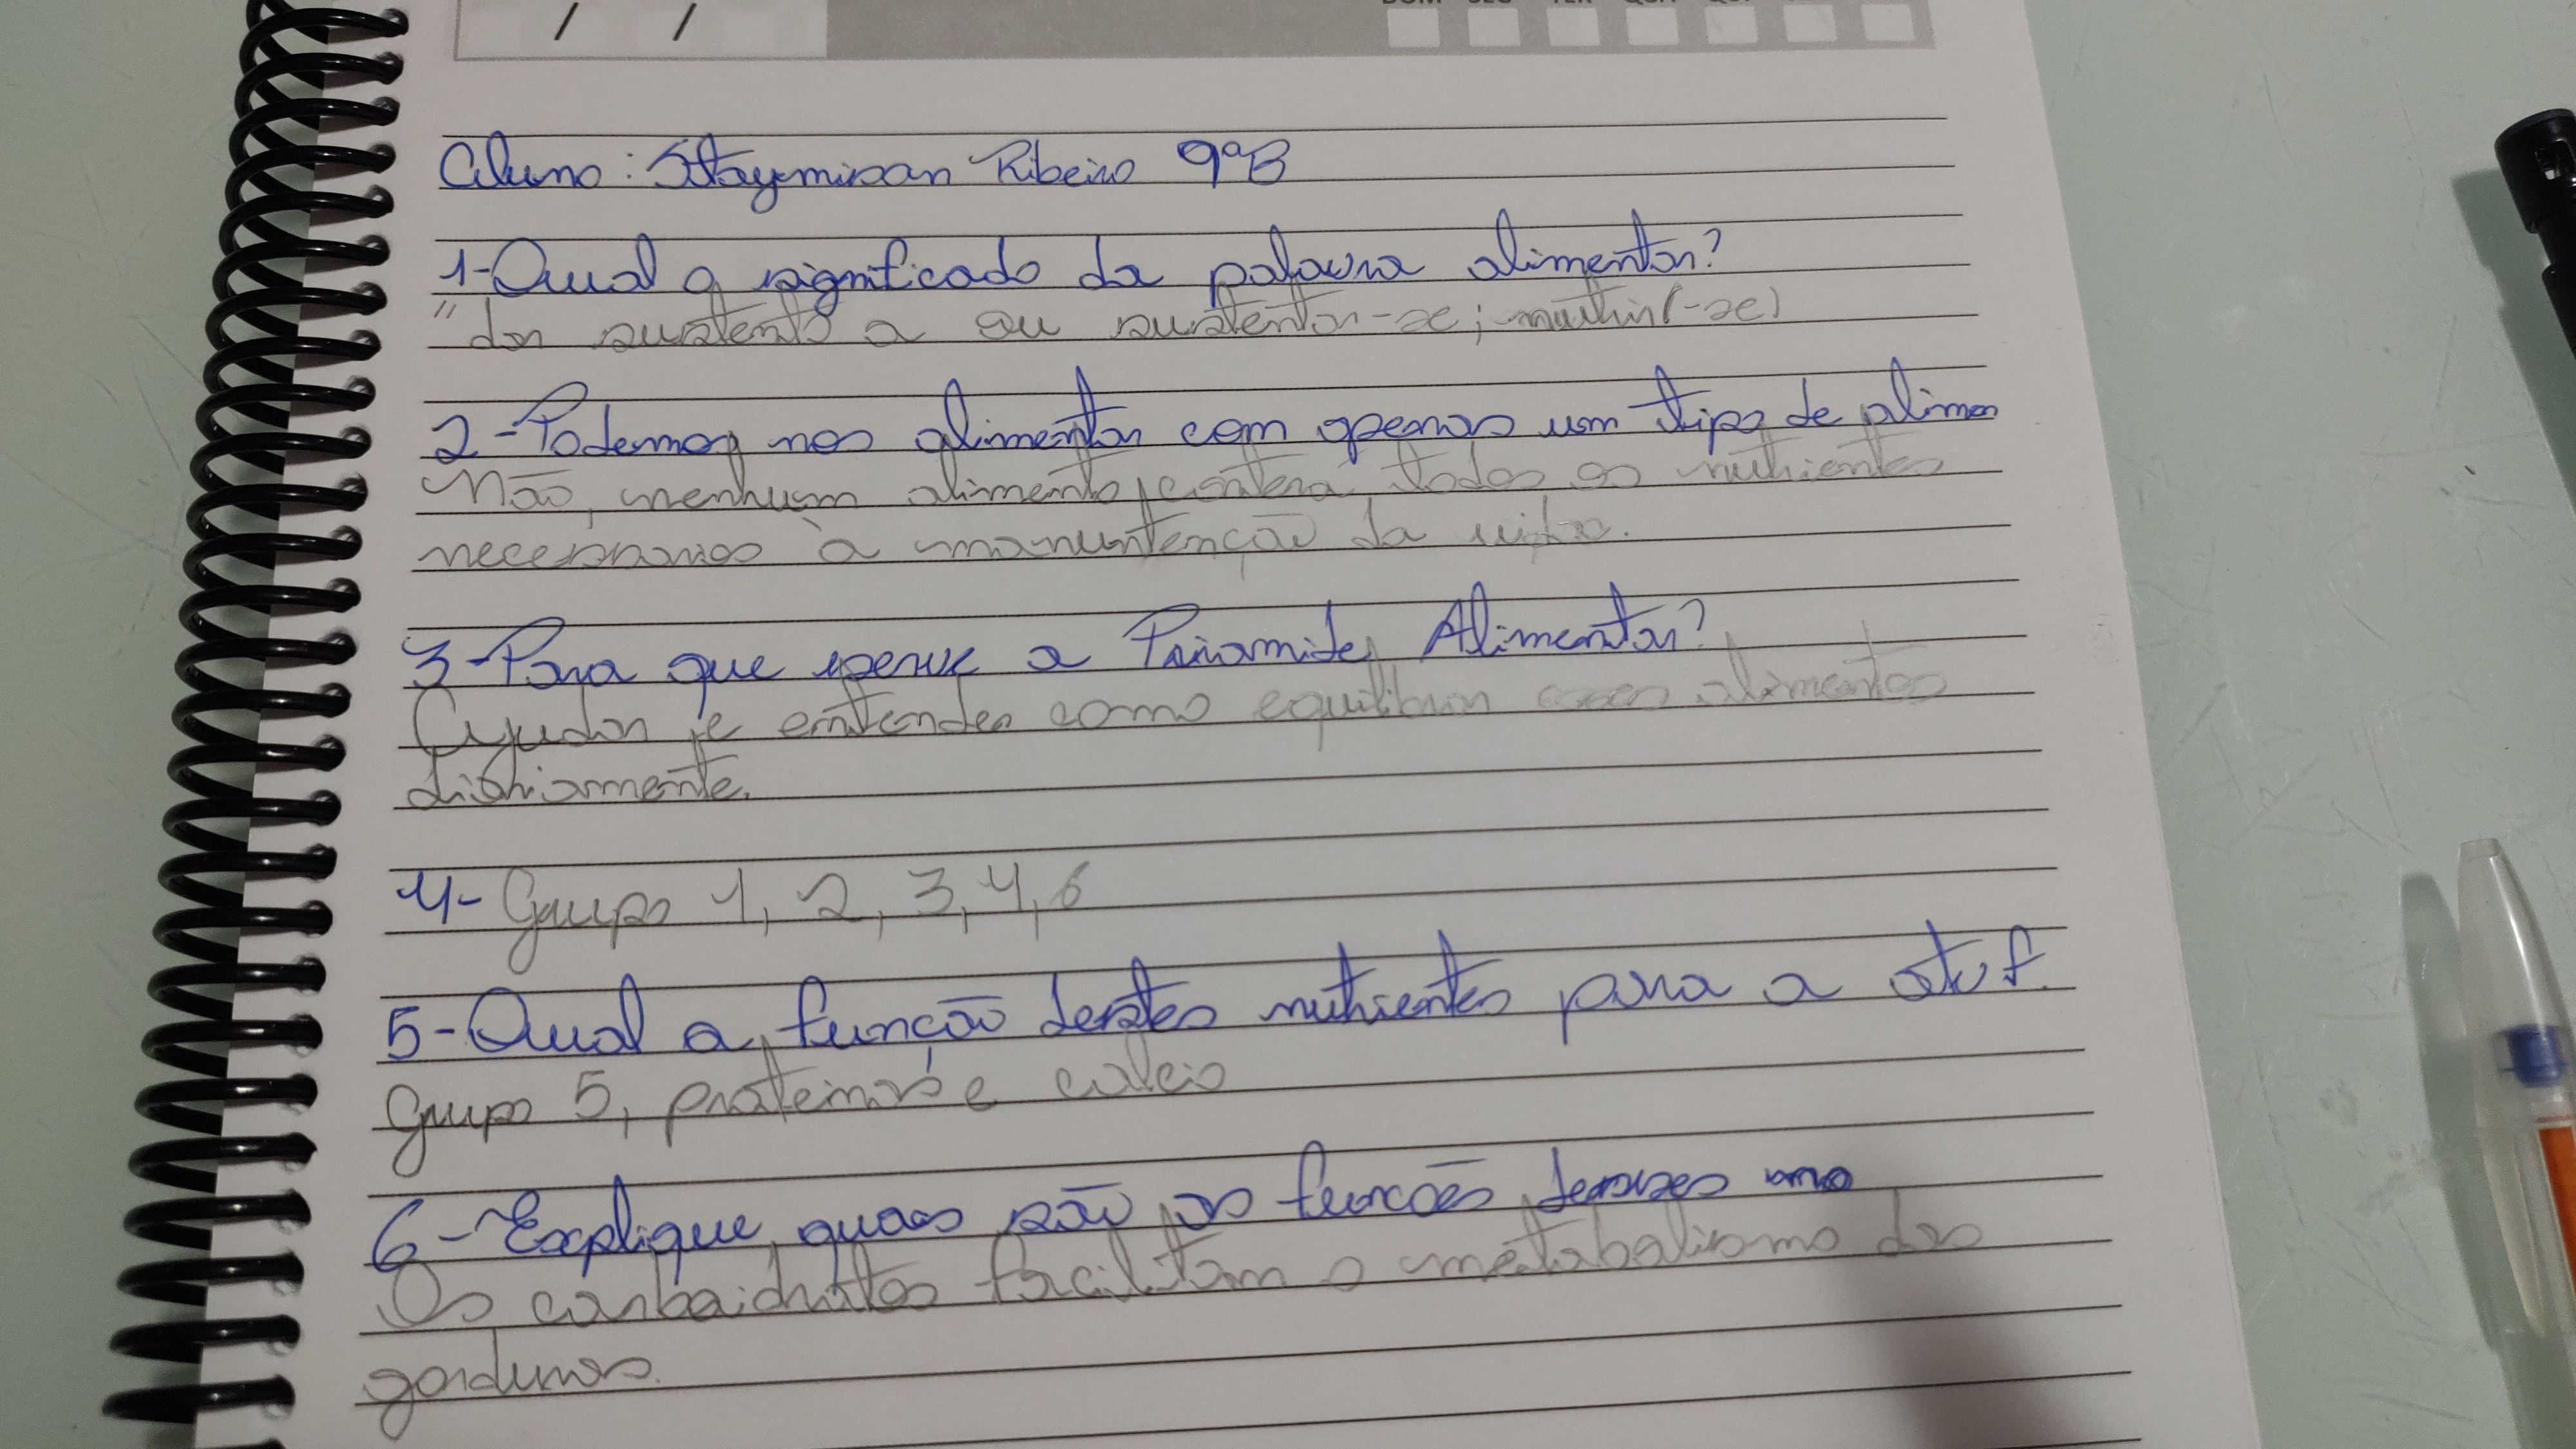 Aluno: Staymison Ribeiro 9ºB
1-Qual o significado da palavra alimentar?
"dar sustento a ou sustentar-se; nutrir(-se)
2-Podemos nos alimentar com apenas um tipo de alimen
Não, nenhum alimento conterá todos os nutrientes
necessários à manutenção da vida.
3-Para que serve a Pirâmide Alimentar?
Ajudar e entender como equilibrar esses alimentos
diariamente.
4-Grupo 1, 2, 3, 4, 6
5-Qual a função destes nutrientes para a ativ.
Grupo 5, proteínas e cálcio
6-Explique quais são as funções desses uma
Os carboidratos facilitam o metabolismo das
gorduras.